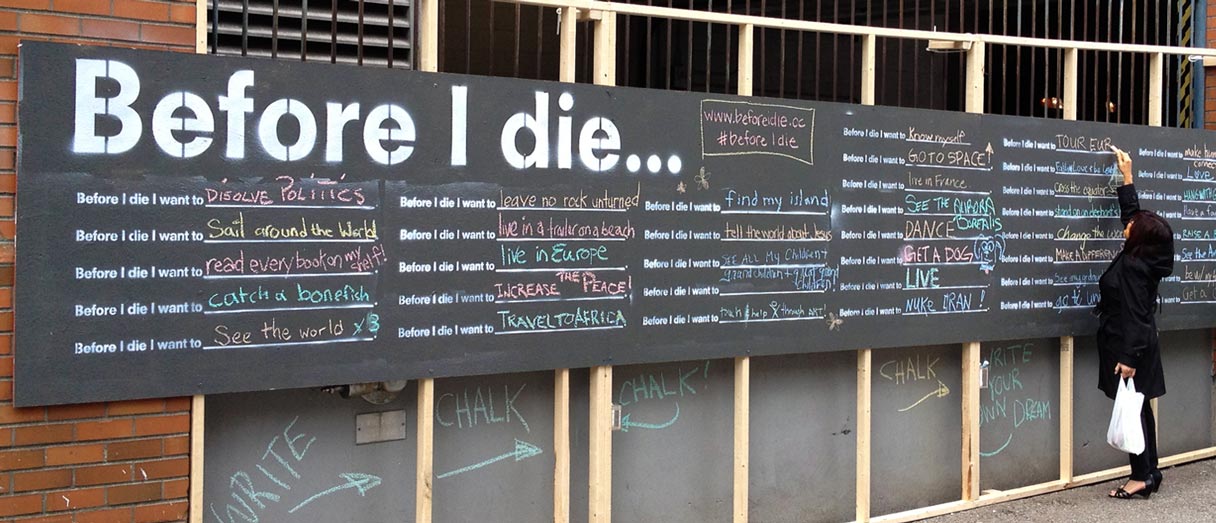 Before I die...
www.beforeidie.cc
#before I die
Before I die I want to DISOLVE POLITICS
Before I die I want to Sail around the World
Before I die I want to read every book on my shelf!
Before I die I want to catch a bonefish
Before I die I want to See the world x3
Before I die I want to leave no rock unturned
Before I die I want to live in a trailer on a beach
Before I die I want to live in Europe
Before I die I want to INCREASE THE PEACE!
Before I die I want to TRAVEL TO AFRICA
Before I die I want to find my island
Before I die I want to tell the world about Jesus
Before I die I want to SEE ALL My CHILDREN
grandchildren + great grand
children!
Before I die I want to truth & help through ART!
Before I die I want to Know myself
Before I die I want to GO TO SPACE!
Before I die I want to live in France
Before I die I want to SEE THE AURORA
BOREALIS
Before I die I want to DANCE
Before I die I want to GET A DOG
Before I die I want to LIVE
Before I die I want to NUKE IRAN!
Before I die I want to TOUR EUR
Before I die I want to
Before I die I want to cross the equator
Before I die I want to
Before I die I want to Change the
Before I die I want to MAKE A DIFFERENCE
Before I die I want to See my
Before I die I want to go to
Before I die I want to make
Before I die I want to LOVE
Before I die I want to
Before I die I want to Have a
Before I die I want to RAISE A
Before I die I want to See the
Before I die I want to
Before I die I want to Get a
WRITE
CHALK
CHALK!
CHALK
WRITE
YOUR
OWN DREAM